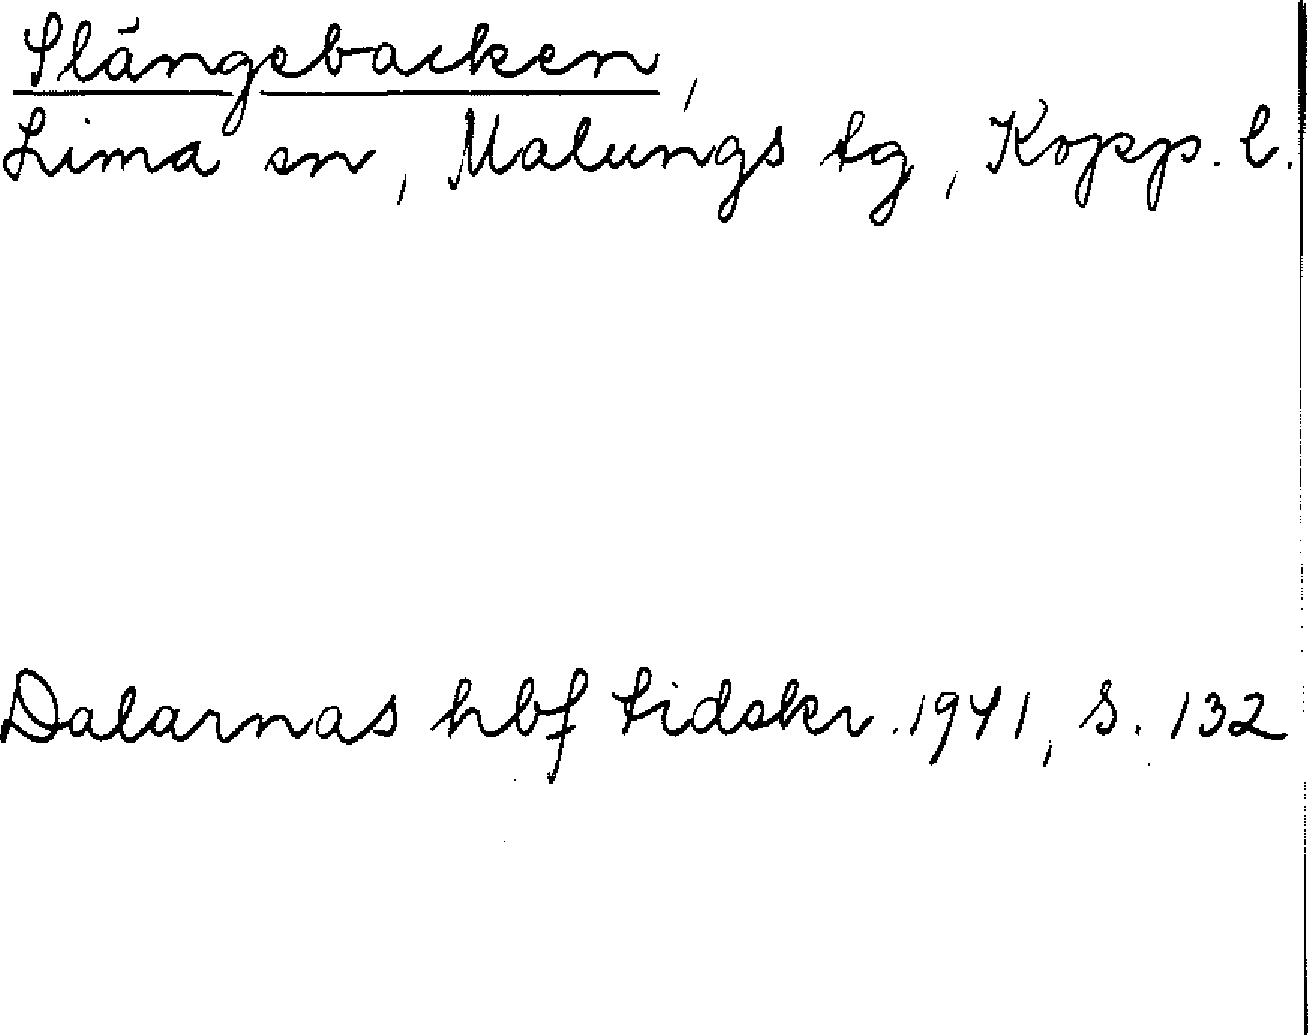 Slängebacken,
Lima sn, Malungs tg, Kopp. l.
Dalarnas hbf tidskr. 1941, s. 132